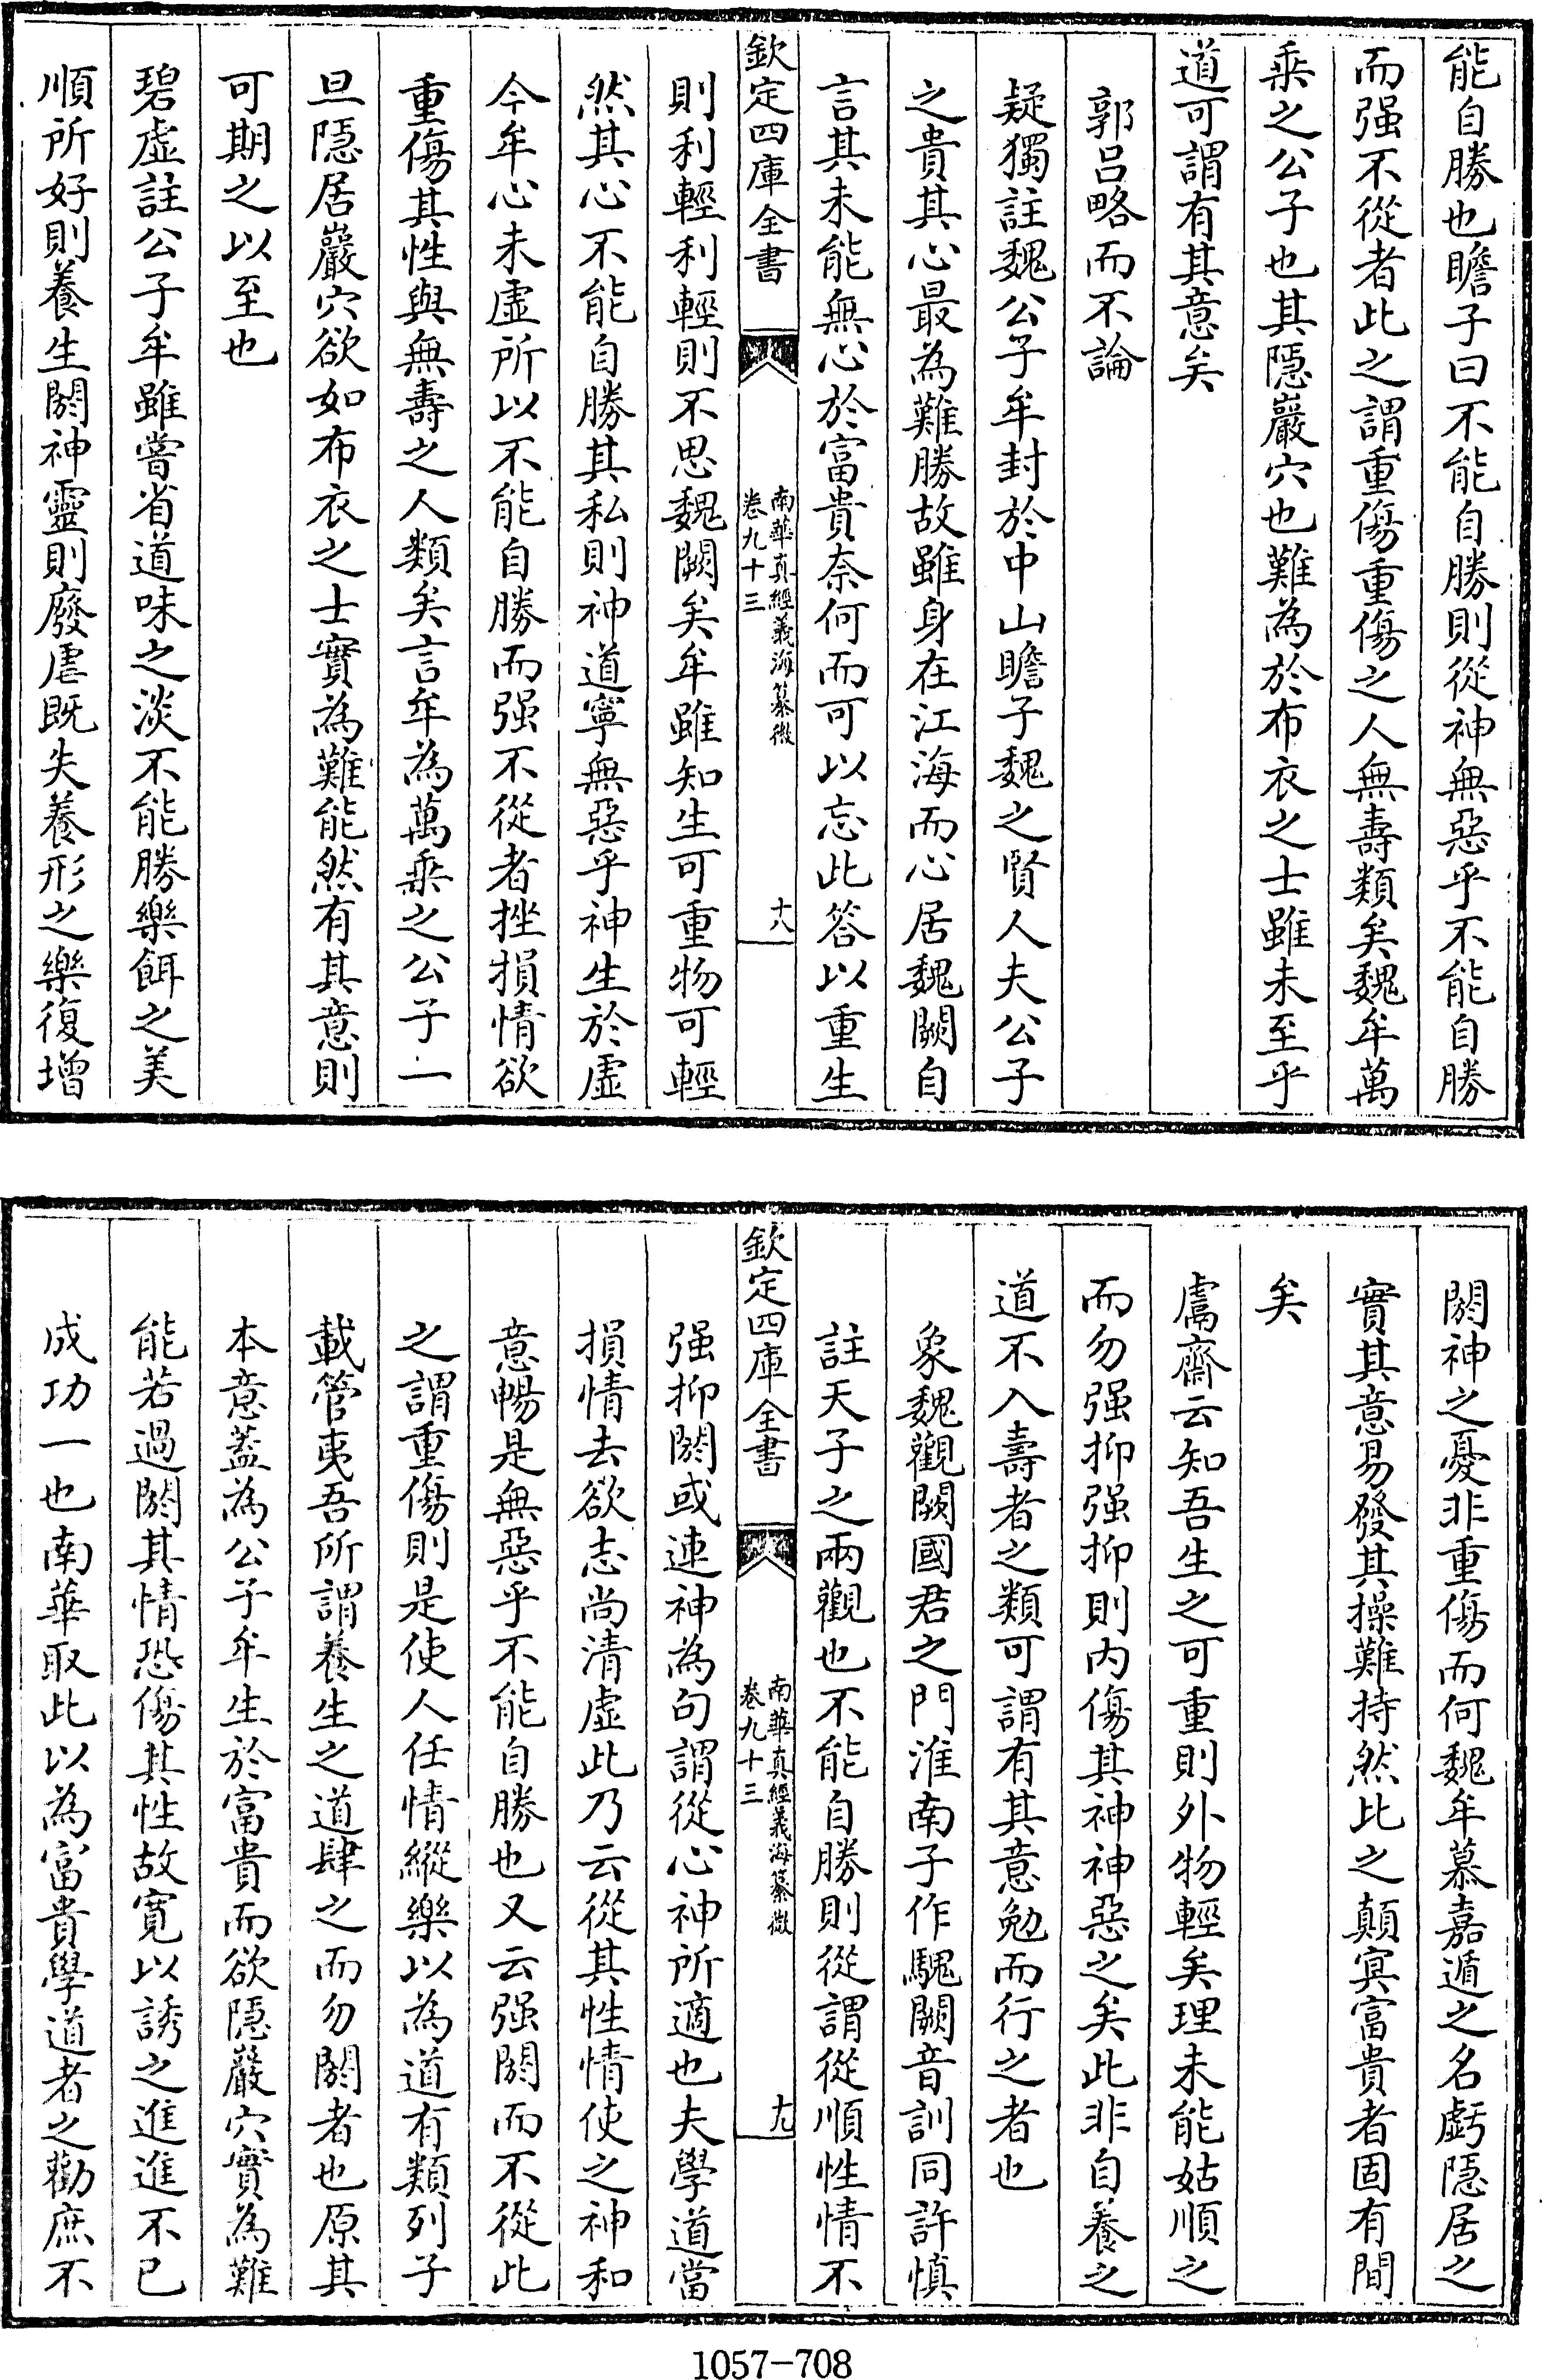 能自勝也瞻子曰不能自勝則從神無惡乎不能自勝
而强不從者此之謂重傷重傷之人無壽類矣魏牟萬
乘之公子也其隱巖穴也難為於布衣之士雖未至乎
道可謂有其意矣
郭呂略而不論
疑獨註魏公子牟封於中山瞻子魏之賢人夫公子
之貴其心最為難勝故雖身在江海而心居魏闕自
言其未能無心於富貴奈何而可以忘此答以重生
欽定四庫全書
南華真經義海纂微
卷九十三
十八
則利輕利輕則不思魏闕矣牟雖知生可重物可輕
然其心不能自勝其私則神道寧無惡乎神生於虛
今牟心未虛所以不能自勝而强不從者挫損情欲
重傷其性與無壽之人類矣言牟為萬乘之公子一
旦隱居巖穴欲如布衣之士實為難能然有其意則
可期之以至也
碧虛註公子牟雖嘗省道味之淡不能勝樂餌之美
順所好則養生閼神靈則廢虐既失養形之樂復增
閼神之憂非重傷而何魏牟慕嘉遁之名虧隱居之
實其意易發其操難持然比之顛冥富貴者固有間
矣
鬳齋云知吾生之可重則外物輕矣理未能姑順之
而勿强抑强抑則内傷其神神惡之矣此非自養之
道不入壽者之類可謂有其意勉而行之者也
象魏觀闕國君之門淮南子作魏闕音訓同許慎
註天子之兩觀也不能自勝則從謂從順性情不
欽定四庫全書
南華真經義海纂微
卷九十三
十九
强抑閼或連神為句謂從心神所適也夫學道當
損情去欲志尚清虛此乃云從其性情使之神和
意暢是無惡乎不能自勝也又云强閼而不從此
之謂重傷則是使人任情縱樂以為道有類列子
載管夷吾所謂養生之道肆之而勿閼者也原其
本意蓋為公子牟生於富貴而欲隱巖穴實為難
能若過閼其情恐傷其性故寬以誘之進進不已
成功一也南華取此以為富貴學道者之勸庶不
1057-708